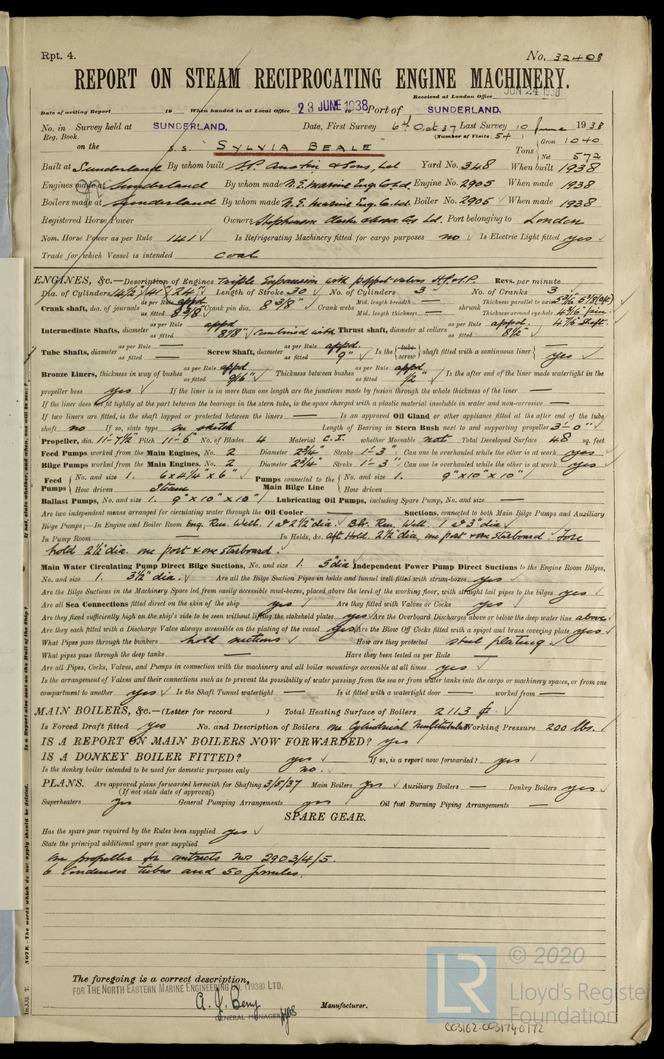 Rpt. 4. No. 32408
REPORT ON STEAM RECIPROCATING ENGINE MACHINERY.
Received at London Office JUN 24 1938
Date of writing Report 19 When handed in at Local Office 23 JUNE 1938 Port of SUNDERLAND.
No. in Survey held at SUNDERLAND. Date, First Survey 6th Oct 37 Last Survey 10 June 1938
Reg. Book. (Number of Visits 54)
on the S.S. SYLVIA BEALE Tons Gross 1040
Net 572
Built at Sunderland By whom built S.P. Austin & Sons, Ltd Yard No. 348 When built 1938
Engines made at Sunderland By whom made N.E. Marine Eng. Co. Ltd. Engine No. 2905 When made 1938
Boilers made at Sunderland By whom made N.E. Marine Eng. Co. Ltd. Boiler No. 2905 When made 1938
Registered Horse Power Owners Stephenson Clarke & Assoc. Cos Ltd. Port belonging to London
Nom. Horse Power as per Rule 141 Is Refrigerating Machinery fitted for cargo purposes no Is Electric Light fitted yes
Trade for which Vessel is intended Coal
ENGINES, &c.—Description of Engines Triple Expansion with poppet valves H.P. & I.P. Revs. per minute
Dia. of Cylinders Length of Stroke 30 No. of Cylinders 3 No. of Cranks 3
Crank shaft, dia. of journals as per Rule appd as fitted 8 3/8" Crank pin dia. 8 3/8" Crank webs Mid. length breadth — Mid. length thickness — shrunk Thickness parallel to axis Thickness around eye-hole
Intermediate Shafts, diameter as per Rule appd as fitted 8 1/8" Combined with Thrust shaft, diameter at collars as per Rule appd. as fitted 8 1/2"
Tube Shafts, diameter as per Rule — as fitted — Screw Shaft, diameter as per Rule appd. as fitted 9" Is the {tube screw} shaft fitted with a continuous liner yes
Bronze Liners, thickness in way of bushes as per Rule appd as fitted 9/16" Thickness between bushes as per Rule appd as fitted 1/2" Is the after end of the liner made watertight in the
propeller boss yes If the liner is in more than one length are the junctions made by fusion through the whole thickness of the liner —
If the liner does not fit tightly at the part between the bearings in the stern tube, is the space charged with a plastic material insoluble in water and non-corrosive —
If two liners are fitted, is the shaft lapped or protected between the liners — Is an approved Oil Gland or other appliance fitted at the after end of the tube
shaft no If so, state type on sketch Length of Bearing in Stern Bush next to and supporting propeller 3'-0"
Propeller, dia. 11'-7 1/2" Pitch 11'-6" No. of Blades 4 Material C.I. whether Moveable not Total Developed Surface 48 sq. feet
Feed Pumps worked from the Main Engines, No. 2 Diameter 2 3/4" Stroke 1'-3" Can one be overhauled while the other is at work yes
Bilge Pumps worked from the Main Engines, No. 2 Diameter 2 3/4" Stroke 1'-3" Can one be overhauled while the other is at work yes
Feed Pumps No. and size 1. 6" x 4 1/4" x 6" Pumps connected to the Main Bilge Line No. and size 1. 9" x 10" x 10"
How driven Steam How driven
Ballast Pumps, No. and size 1. 9" x 10" x 10" Lubricating Oil Pumps, including Spare Pump, No. and size —
Are two independent means arranged for circulating water through the Oil Cooler — Suctions, connected to both Main Bilge Pumps and Auxiliary
Bilge Pumps;—In Engine and Boiler Room Eng. Rm. Well. 1 @ 2 1/2" dia. Blr. Rm. Well. 1 @ 3" dia
In Pump Room — In Holds, &c. Aft Hold. 2 1/2" dia. one port & one starboard. Fore
hold 2 1/2" dia. one port & one starboard.
Main Water Circulating Pump Direct Bilge Suctions, No. and size 1. 5" dia Independent Power Pump Direct Suctions to the Engine Room Bilges,
No. and size 1. 3 1/2" dia. Are all the Bilge Suction Pipes in holds and tunnel well fitted with strum-boxes yes
Are the Bilge Suctions in the Machinery Space led from easily accessible mud-boxes, placed above the level of the working floor, with straight tail pipes to the bilges yes
Are all Sea Connections fitted direct on the skin of the ship yes Are they fitted with Valves or Cocks yes
Are they fixed sufficiently high on the ship's side to be seen without lifting the stokehold plates yes Are the Overboard Discharges above or below the deep water line above
Are they each fitted with a Discharge Valve always accessible on the plating of the vessel yes Are the Blow Off Cocks fitted with a spigot and brass covering plate yes
What Pipes pass through the bunkers hold suctions How are they protected steel plating
What pipes pass through the deep tanks — Have they been tested as per Rule —
Are all Pipes, Cocks, Valves, and Pumps in connection with the machinery and all boiler mountings accessible at all times yes
Is the arrangement of Valves and their connections such as to prevent the possibility of water passing from the sea or from water tanks into the cargo or machinery spaces, or from one
compartment to another yes Is the Shaft Tunnel watertight — Is it fitted with a watertight door — worked from —
MAIN BOILERS, &c.—(Letter for record ) Total Heating Surface of Boilers 2113
Is Forced Draft fitted yes No. and Description of Boilers one Cylindrical Multitubular Working Pressure 200 lbs.
IS A REPORT ON MAIN BOILERS NOW FORWARDED? yes
IS A DONKEY BOILER FITTED? yes If so, is a report now forwarded? yes
Is the donkey boiler intended to be used for domestic purposes only no.
PLANS. Are approved plans forwarded herewith for Shafting 3/5/37 Main Boilers yes Auxiliary Boilers — Donkey Boilers yes
(If not state date of approval)
Superheaters yes General Pumping Arrangements yes Oil fuel Burning Piping Arrangements —
SPARE GEAR.
Has the spare gear required by the Rules been supplied yes
State the principal additional spare gear supplied
One propeller for contracts nos 2903/4/5.
6 Condenser tubes and 50 ferrules.
The foregoing is a correct description,
FOR THE NORTH EASTERN MARINE ENGINEERING CO. (1938) LTD.
GENERAL MANAGER Manufacturer.
© 2020
LR
Lloyd's Register
Foundation
003162-003174-0172